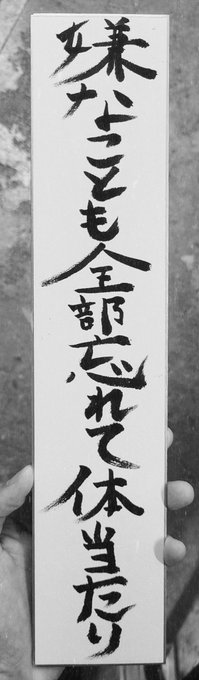 嫌なことも全部忘れて体当たり